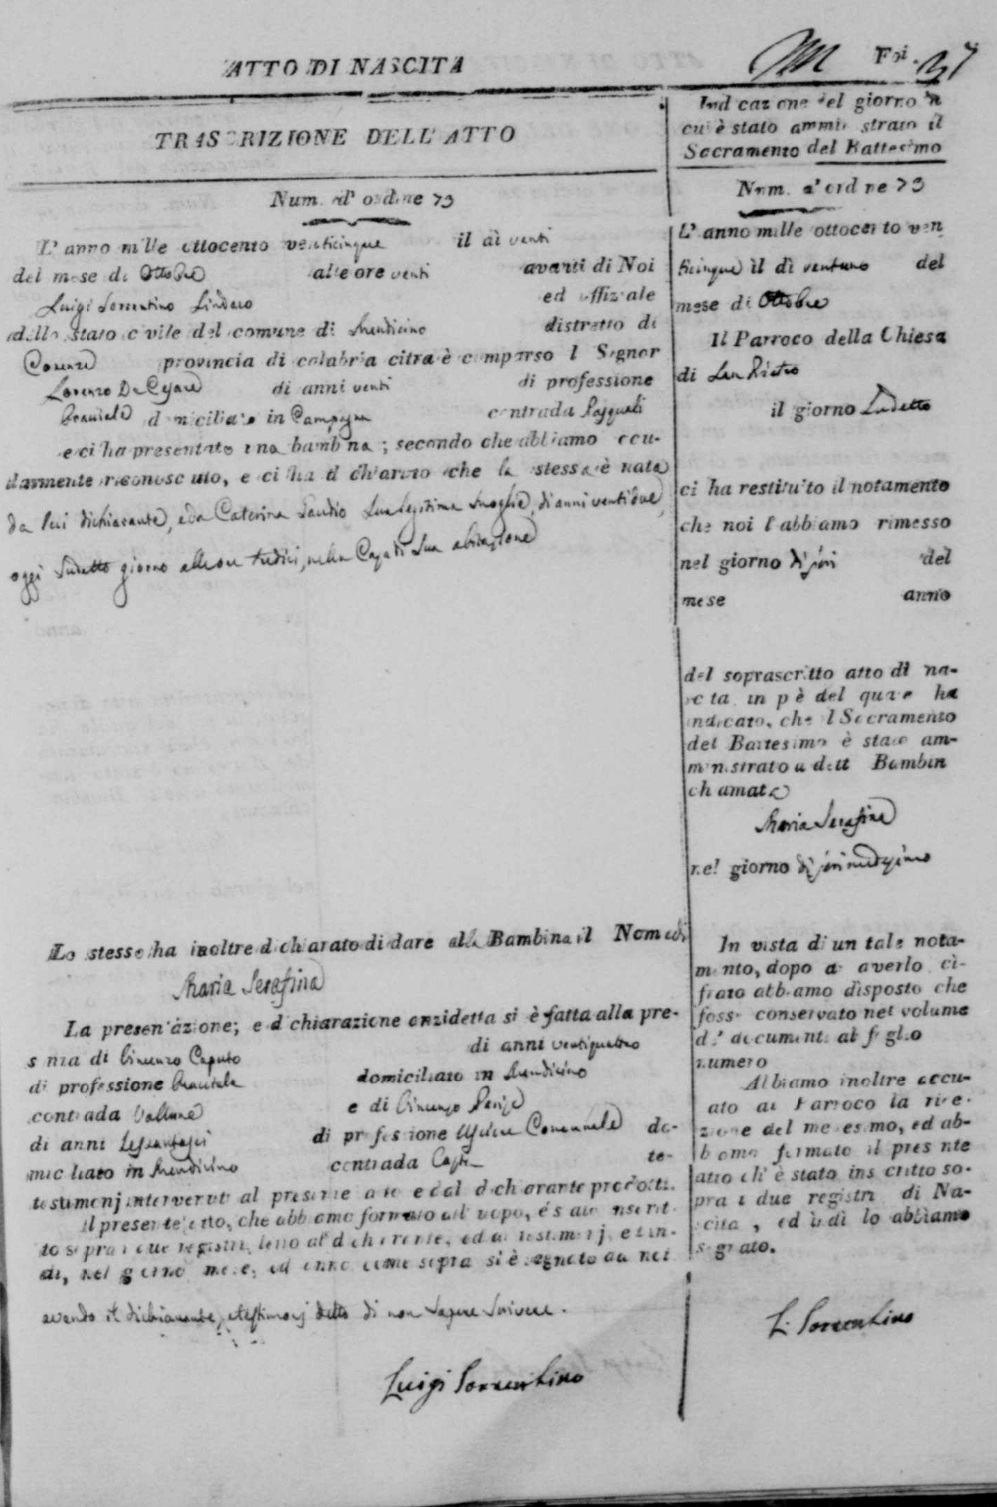 ATTO DI NASCITA
Fol. 37
TRASCRIZIONE DELL' ATTO
Num. d' ordine 73
L' anno mille ottocento venticinque il dì venti
del mese di Ottobre alle ore venti avanti di Noi
Luigi Sorrentino Sindaco ed uffiziale
dello stato civile del comune di Mendicino distretto di
Cosenza provincia di calabria citra è comparso l Signor
Lorenzo De Cesare di anni venti di professione
Bracciale domiciliato in Campagna contrada Pasquali
e ci ha presentato una bambina; secondo che abbiamo ocu-
larmente riconosciuto, e ci ha dichiarato che la stessa è nata
da lui dichiarante, e da Caterina Gaudio Sua legitima Moglie, di anni ventidue,
oggi Sudetto giorno alle ore tredici, nella Casa di Sua abitazione
Lo stesso ha inoltre dichiarato di dare alla Bambina il Nome di
Maria Serafina
La presentazione, e dichiarazione anzidetta si è fatta alla pre-
senza di Vincenzo Caputo di anni ventiquattro
di professione Bracciale domiciliato in Mendicino
contrada e di Vincenzo
di anni di professione do-
miciliato in Mendicino contrada te-
testimonj intervenuti al presente atto e dal dichiarante prodotti.
Il presente atto, che abbiamo formato all' uopo, è stato inscrit-
to sopra i due registri, letto al dichiarante, ed ai testimonj, e in-
di, nel giorno mese, ed anno come sopra si è segnato da noi
avendo il dichiarante, e testimonj detto di non Sapere Scrivere.
Luigi Sorrentino
Indicazione del giorno in
cui è stato amministrato il
Sacramento del Battesimo
Num. d' ordine 73
L' anno mille ottocento ven
ticinque il dì ventuno del
mese di Ottobre
Il Parroco della Chiesa
di San Pietro
il giorno Sudetto
ci ha restituito il notamento
che noi l'abbiamo rimesso
nel giorno di jeri del
mese anno
del soprascritto atto di na-
scita in piè del quale ha
indicato, che l Sacramento
del Battesimo è stato am-
ministrato a dett Bambin
chiamata
Maria Serafina
nel giorno di jeri medesimo
In vista di un tale nota-
mento, dopo di averlo ci-
frato abbiamo disposto che
fosse conservato nel volume
de' documenti al foglio
numero
Abbiamo inoltre accu-
sato al Parroco la rice-
zione del medesimo, ed ab-
biamo formato il presente
atto ch' è stato inscritto so-
pra i due registri di Na-
scita, ed indi lo abbiamo
segnato.
L. Sorrentino